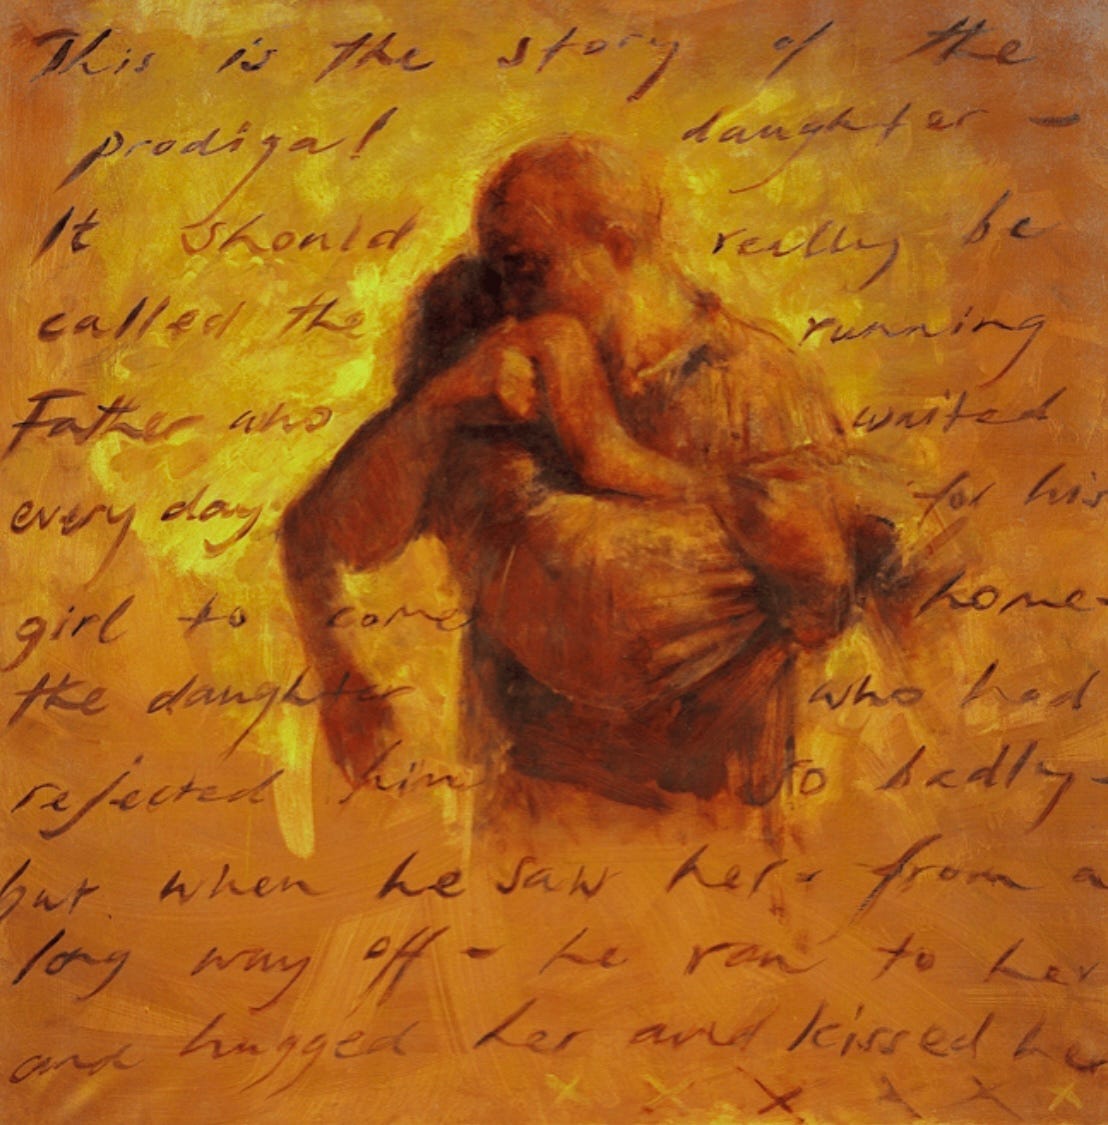 This is the story of the
prodigal daughter -
It should really be
called the running
Father who waited
every day for his
girl to come home-
the daughter who had
rejected him so badly-
but when he saw her - from a
long way off - he ran to her
and hugged her and kissed her
x x x x x x